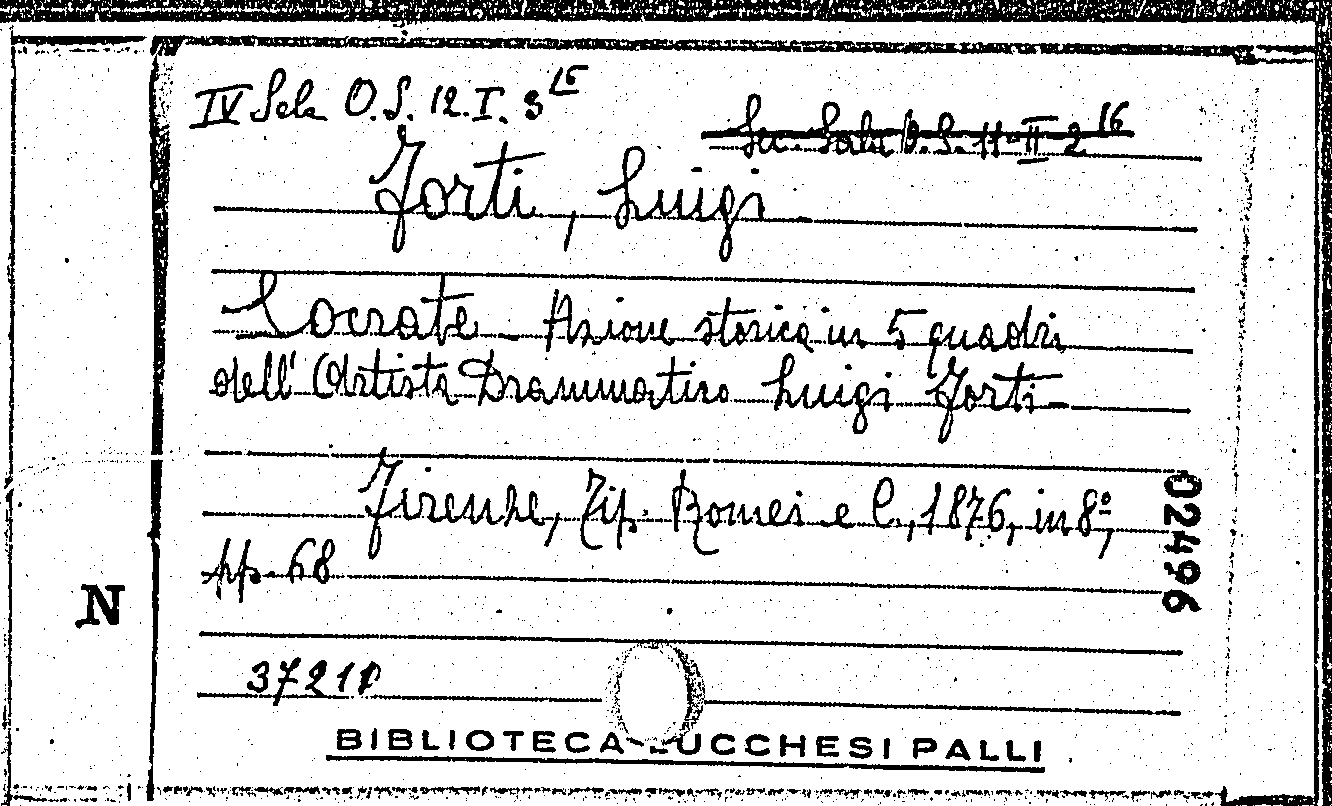 IV Sala O.S. 12.I. 3 15
Sec. Sala O.S. 11-II-2 16
Forti, Luigi
Socrate - Azione storica in 5 quadri
dell' Artista Drammatico Luigi Forti -
Firenze, Tip. Romei e C., 1876, in 8º,
pp. 68
02496
N
37211
BIBLIOTECA LUCCHESI PALLI